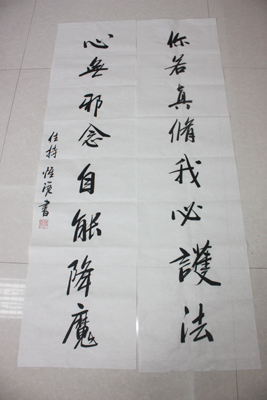 你若真脩我必護法
心無邪念自能降魔
住持 悟演書